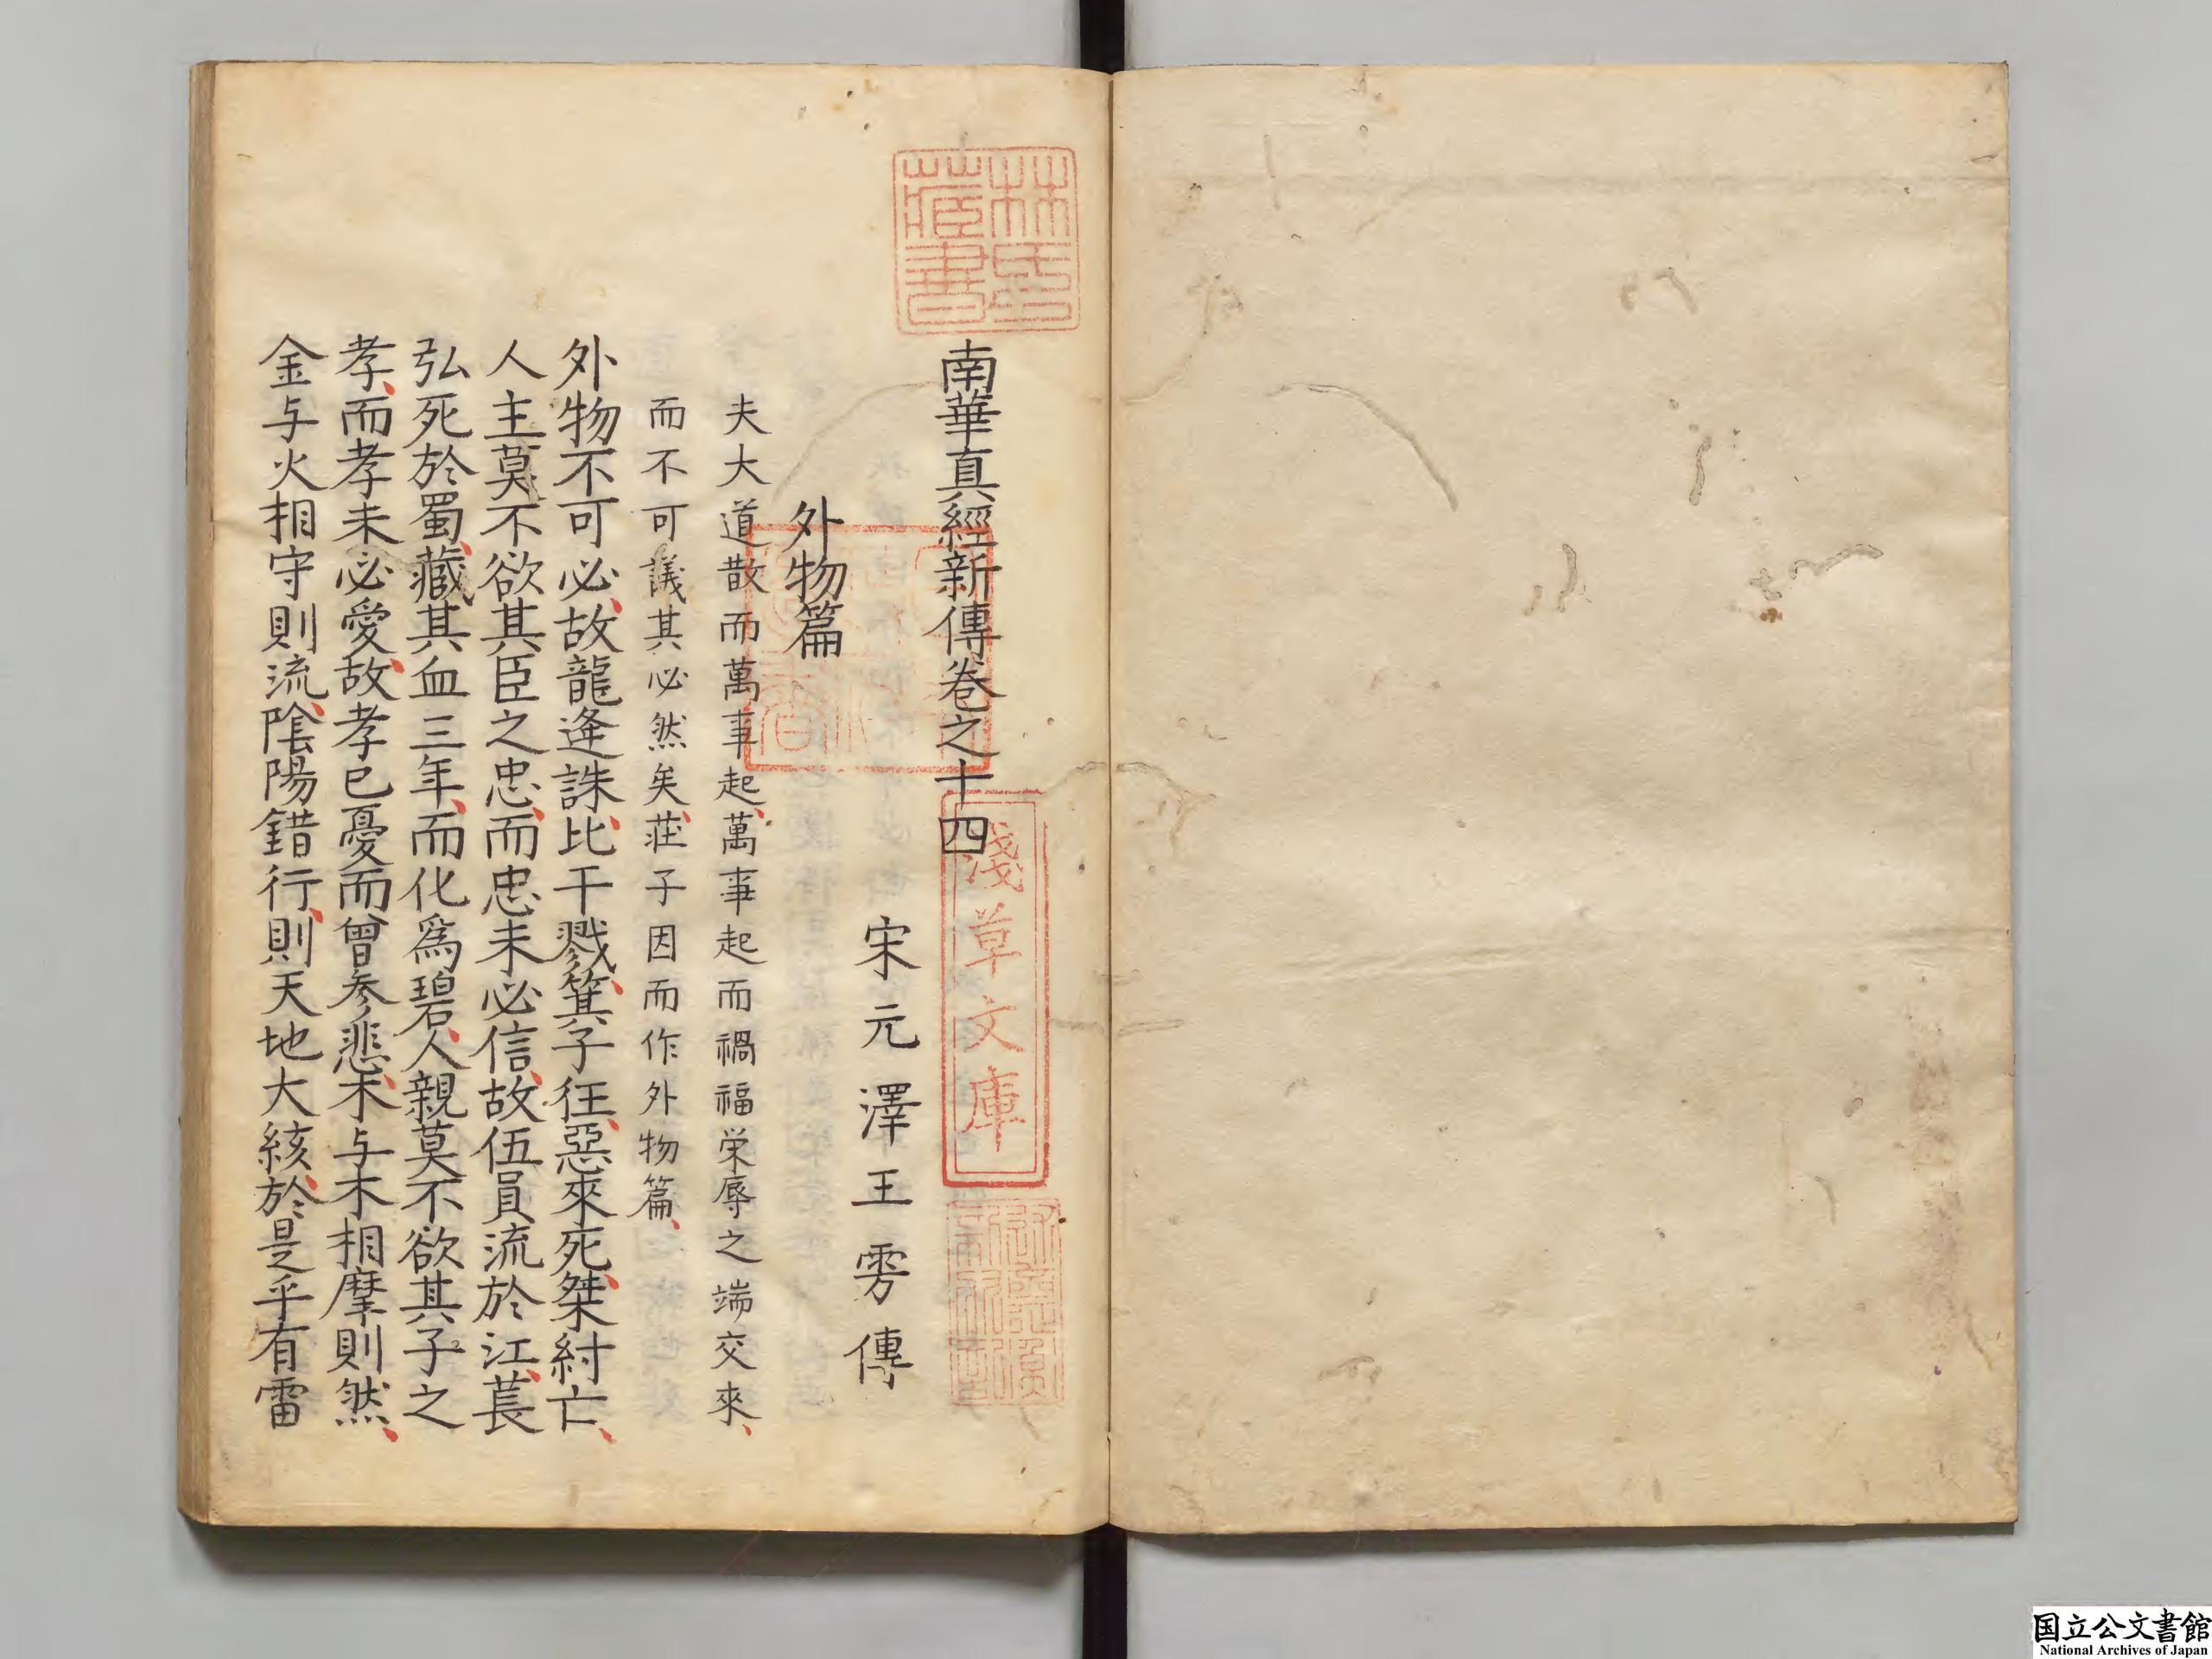 南華真經新傳卷之十四
宋元澤王雱傳
外物篇
夫大道散而萬事起萬事起而禍福荣辱之端交來
而不可議其必然矣莊子因而作外物篇
外物不可必故龍逄誅比干戮箕子狂惡來死桀紂亡
人主莫不欲其臣之忠而忠未必信故伍員流於江萇
弘死於蜀藏其血三年而化爲碧人親莫不欲其子之
孝而孝未必愛故孝已憂而曾参悲木与木相摩則然
金与火相守則流陰陽錯行則天地大絯於是乎有雷
林氏藏書
淺草文庫
国立公文書館
National Archives of Japan